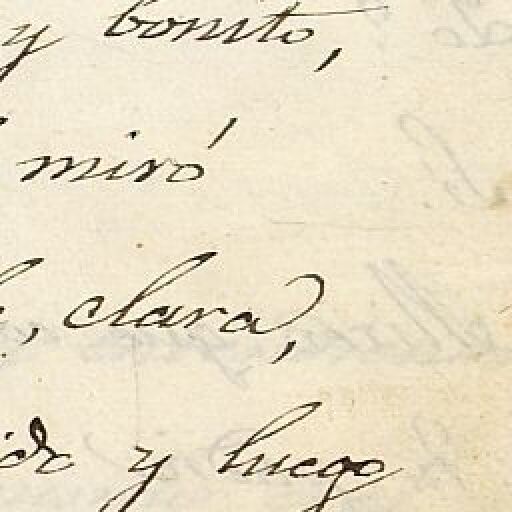 y bonito,
miró
, clara,
ido y luego